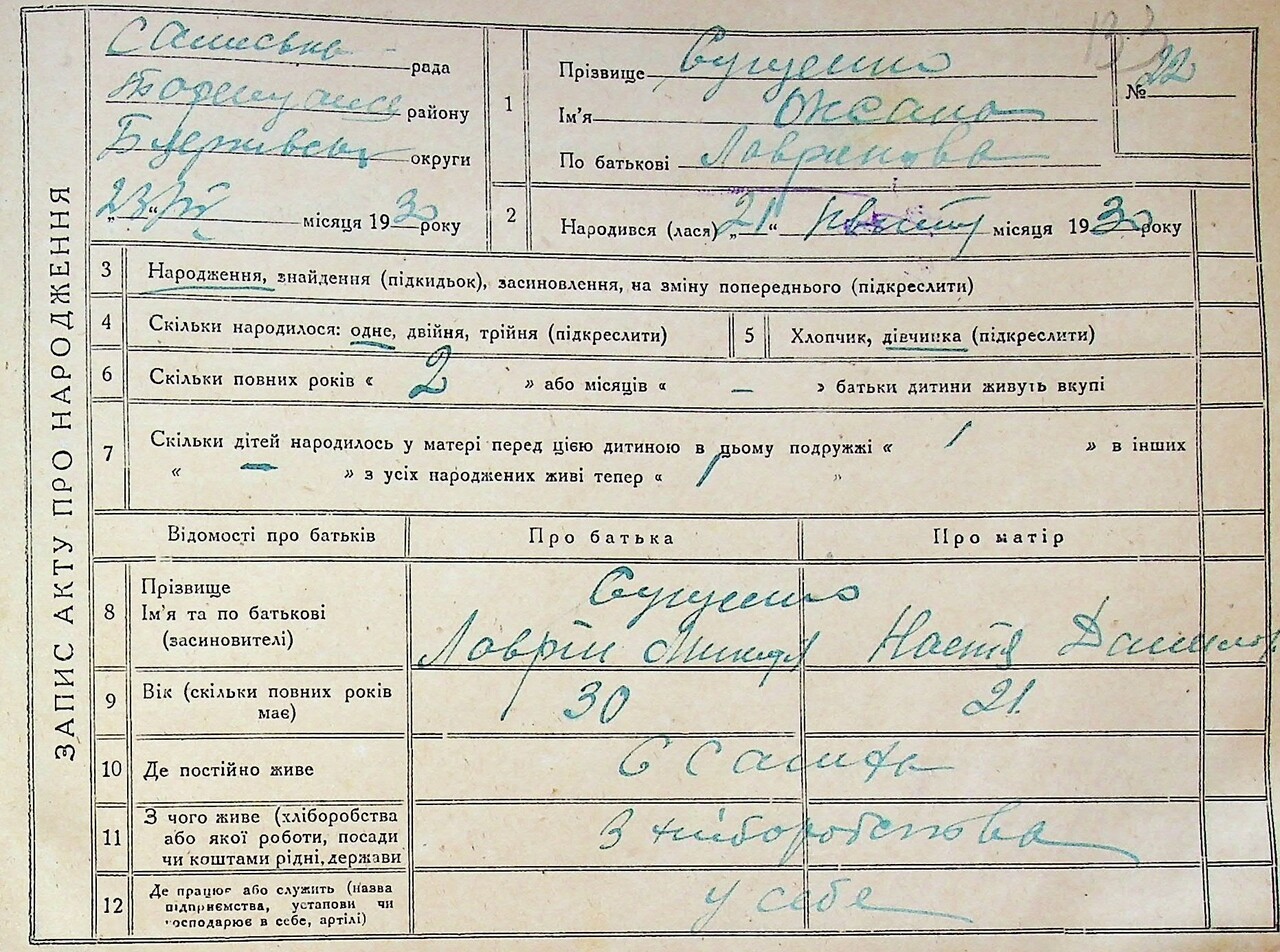 ЗАПИС АКТУ ПРО НАРОДЖЕННЯ
рада
району
округи
„23“ місяця 1930 року
133
№ 22
1 Прізвище
Ім'я Оксана
По батькові Лаврінова
2 Народився (лася) „21“ квітня місяця 1930 року
3 Народження, знайдення (підкидьок), засиновлення, на зміну попереднього (підкреслити)
4 Скільки народилося: одне, двійня, трійня (підкреслити) 5 Хлопчик, дівчинка (підкреслити)
6 Скільки повних років « 2 » або місяців « — » батьки дитини живуть вкупі
7 Скільки дітей народилось у матері перед цією дитиною в цьому подружжі « 1 » в інших
« — » з усіх народжених живі тепер « 1 »
Відомості про батьків Про батька Про матір
8 Прізвище
Ім'я та по батькові
(засиновителі)
Лаврін Настя Данилов
9 Вік (скільки повних років
має) 30 21
10 Де постійно живе
11 З чого живе (хліборобства
або якої роботи, посади
чи коштами рідні, держави
З хліборобства
12 Де працює або служить (назва
підприємства, установи чи
господарює в себе, артілі)
у себе